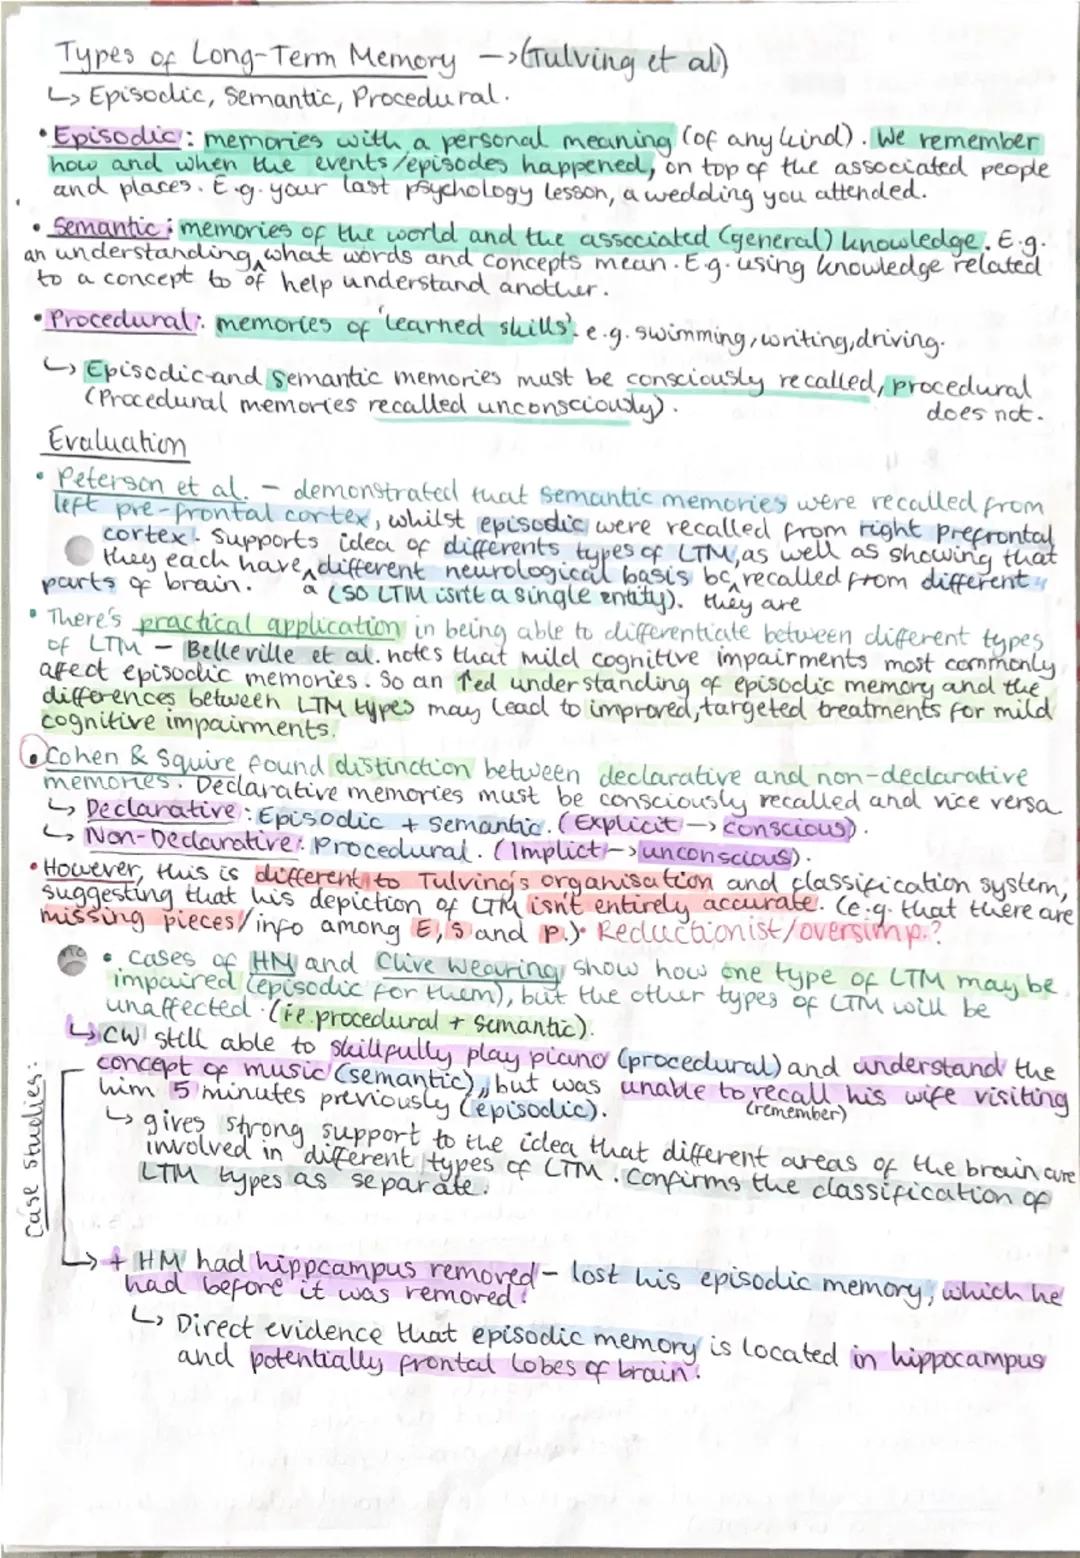 Types of Long-Term Memory → (Tulving et al)
↳ Episodic, Semantic, Procedural.
• Episodic: memories with a personal meaning (of any kind). We remember
how and when the events/episodes happened, on top of the associated people
and places. E.g. your last psychology lesson, a wedding you attended.
• Semantic: memories of the world and the associated (general) knowledge. E.g.
an understanding ^ what words and concepts mean. E.g. using knowledge related
to a concept to of help understand another.
• Procedural: memories of 'learned skills'. e.g. swimming, writing, driving.
↳ Episodic and semantic memories must be consciously recalled, procedural
(Procedural memories recalled unconsciously). does not.
Evaluation
• Peterson et al. – demonstrated that semantic memories were recalled from
left pre-frontal cortex, whilst episodic were recalled from right prefrontal
cortex. Supports idea of differents types of LTM, as well as showing that
they each have ^ different neurological basis bc ^ recalled from different
parts of brain. a (so LTM isn't a single entity). they are
• There's practical application in being able to differentiate between different types
of LTM – Belleville et al. notes that mild cognitive impairments most commonly
affect episodic memories. So an ↑ed understanding of episodic memory and the
differences between LTM types may lead to improved, targeted treatments for mild
cognitive impairments.
• Cohen & Squire found distinction between declarative and non-declarative
memories. Declarative memories must be consciously recalled and vice versa
↳ Declarative: Episodic + Semantic. (Explicit → conscious).
↳ Non-Declarative: Procedural. (Implict → unconscious).
• However, this is different to Tulving's organisation and classification system,
suggesting that his depiction of LTM isn't entirely accurate. (e.g. that there are
missing pieces/info among E, S and P.). Reductionist/oversimp.?
• Cases of HM and Clive Wearing show how one type of LTM may be
impaired (episodic for them), but the other types of LTM will be
unaffected. (i.e. procedural + semantic).
Case studies:
↳ CW still able to skillfully play piano (procedural) and understand the
concept of music (semantic), but was unable to recall his wife visiting
him 5 minutes previously (episodic). (remember)
↳ gives strong support to the idea that different areas of the brain are
involved in different types of LTM. Confirms the classification of
LTM types as separate.
↳ + HM had hippcampus removed – lost his episodic memory, which he
had before it was removed.
↳ Direct evidence that episodic memory is located in hippocampus
and potentially frontal lobes of brain.